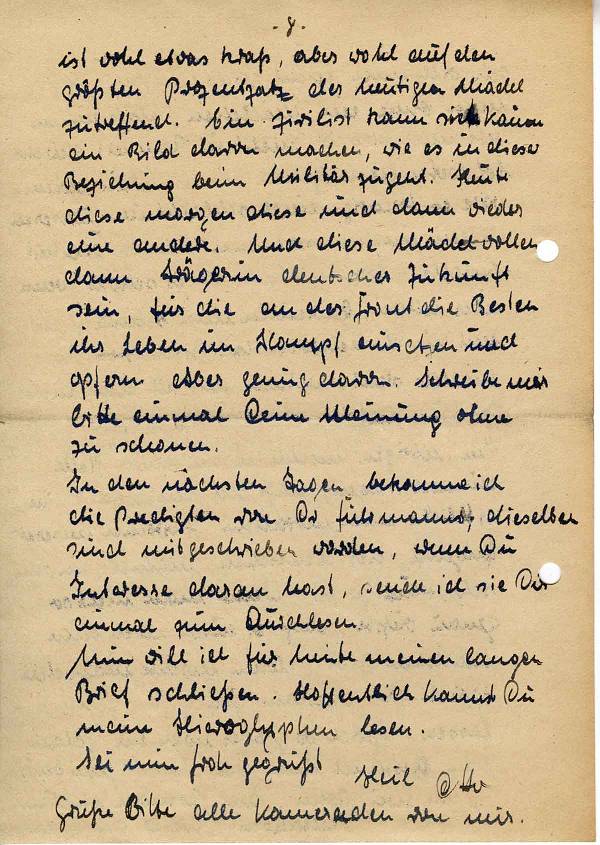 - 8. -
ist wohl etwas kraß, aber wohl auf den
größten Prozentzatz der heutigen Mädel
zutreffend. Ein Zivilist kann sich kaum
ein Bild davon machen, wie es in dieser
Beziehung beim Militär zugeht. Heute
diese morgen diese und dann wieder
eine andere. Und diese Mädel wollen
dann Trägerin deutscher Zukunft
sein, für die an der Front die Besten
ihr Leben im Kampf einsetzen und
opfern. Aber genug davon. Schreibe mir
bitte einmal Deine Meinung ohne
zu schonen.
In den nächsten Tagen bekomme ich
die Predigten von Dr. dieselben
sind mitgeschrieben worden, wenn Du
Interesse daran hast, sende ich sie Dir
einmal zum Durchlesen.
Nun will ich für heute meinen langen
Brief schließen. Hoffentlich kannst Du
meine Hieroglyphen lesen.
Sei nun froh gegrüßt
Heil Otto
Grüße Bitte alle Kameraden von mir.